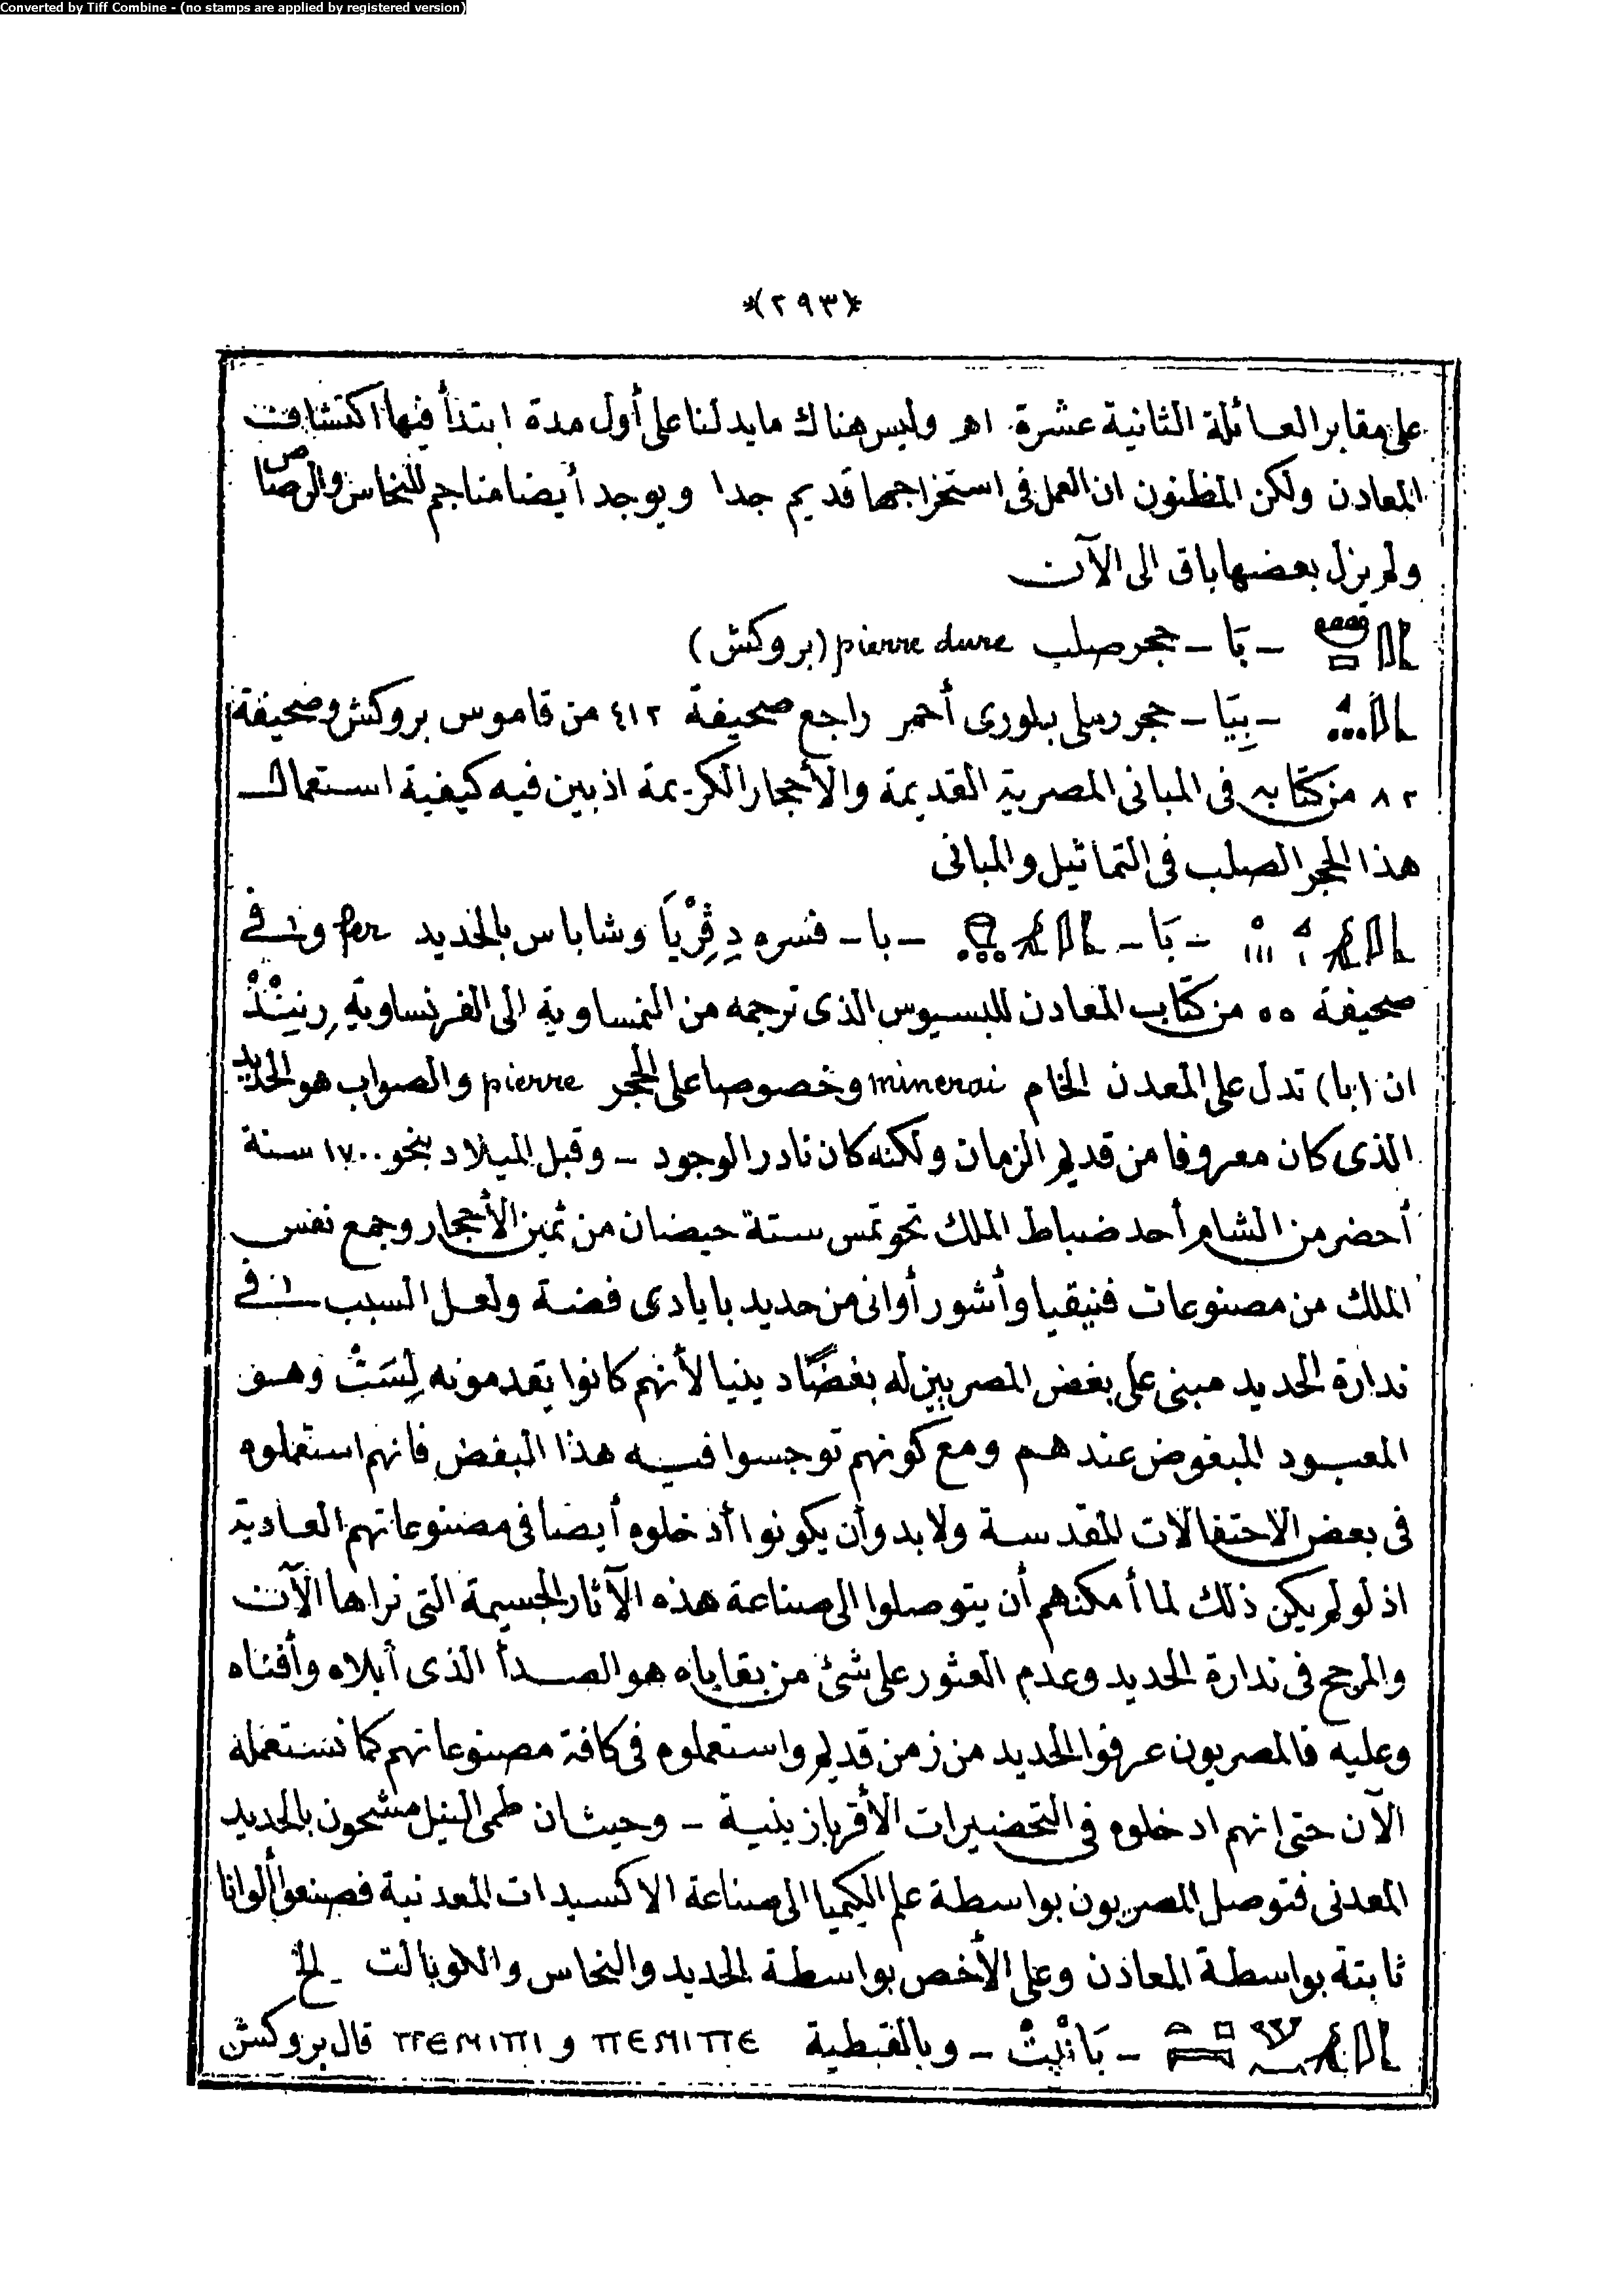 Converted by Tiff Combine - (no stamps are applied by registered version)
*(٢٩٣)*
على مقابر العائلة الثانية عشرة اهـ وليس هناك ما يدلنا على أول مدة ابتدأ فيها اكتشاف
المعادن ولكن المظنون ان العمل فى استخراجها قديم جدا ويوجد أيضا مناجم للنحاس والرصاص
ولم يزل بعضها باق الى الآن
- بَا - حجر صلب pierre dure (بروكش)
- بِيَا - حجر رملى بلورى أحمر راجع صحيفة ٤١٢ من قاموس بروكش وصحيفة
٨٢ من كتابه فى المبانى المصرية القديمة والأحجار الكريمة اذ بين فيه كيفية استعمال
هذا الحجر الصلب فى التماثيل والمبانى
- بَا - - با - فسره دِڤِرْيَا وشاباس بالحديد fer و فى
صحيفة ٥٥ من كتاب المعادن للبسيوس الذى ترجمه من النمساوية الى الفرنساوية
ان (با) تدل على المعدن الخام minerai وخصوصا على الحجر pierre والصواب هو الحديد
الذى كان معروفا من قديم الزمان ولكنه كان نادر الوجود - وقبل الميلاد بنحو ١٧٠٠ سنة
أحضر من الشام أحد ضباط الملك تحوتمس ستة حيضان من ثمين الأحجار وجمع نفس
الملك من مصنوعات فنيقيا وأشور أوانى من حديد بايادى فضة ولعل السبب فى
ندارة الحديد مبنى على بغض المصريين له بغضًا دينيا لأنهم كانوا يقدمونه لِسَتْ وهو
المعبود المبغوض عندهم ومع كونهم توجسوا فيه هذا البغض فانهم استعملوه
فى بعض الاحتفالات المقدسة ولا بد وأن يكونوا أدخلوه أيضا فى مصنوعاتهم العادية
اذ لو لم يكن ذلك لما أمكنهم أن يتوصلوا الى صناعة هذه الآثار الجسيمة التى نراها الآن
والمرجح فى ندارة الحديد وعدم العثور على شئ من بقاياه هو الصدأ الذى أبلاه وأفناه
وعليه فالمصريون عرفوا الحديد من زمن قديم واستعملوه فى كافة مصنوعاتهم كما نستعمله
الآن حتى انهم ادخلوه فى التحضيرات الأقرباذينية - وحيث ان طمى النيل مشحون بالحديد
المعدنى فتوصل المصريون بواسطة علم الكيميا الى صناعة الاكسيدات المعدنية فصنعوا ألوانا
ثابتة بواسطة المعادن وعلى الأخص بواسطة الحديد والنحاس والكوبالت الخ
- بَانْبِتْ - وبالقبطية ⲡⲉⲛⲓⲡⲉ و ⲡⲉⲛⲓⲡⲓ قال بروكش